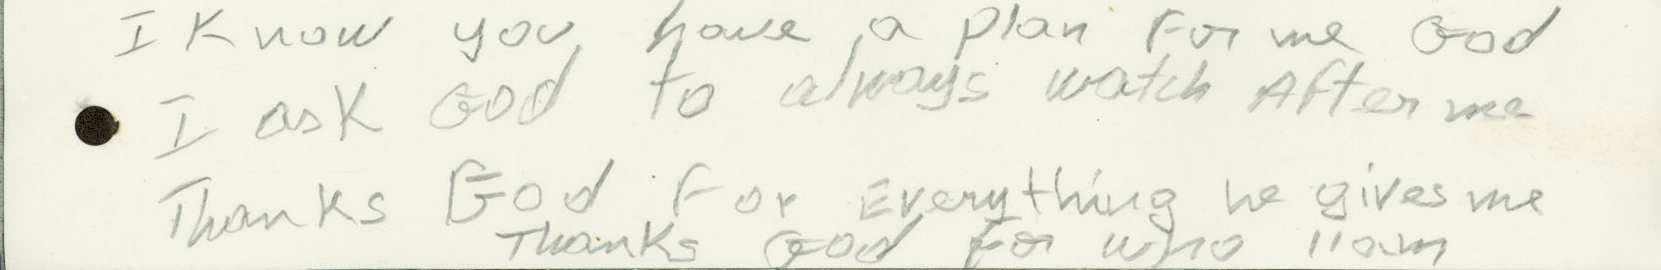 I Know you have a plan For me God
I ask God to always watch After me
Thanks God For Everything he gives me
Thanks God For who I am